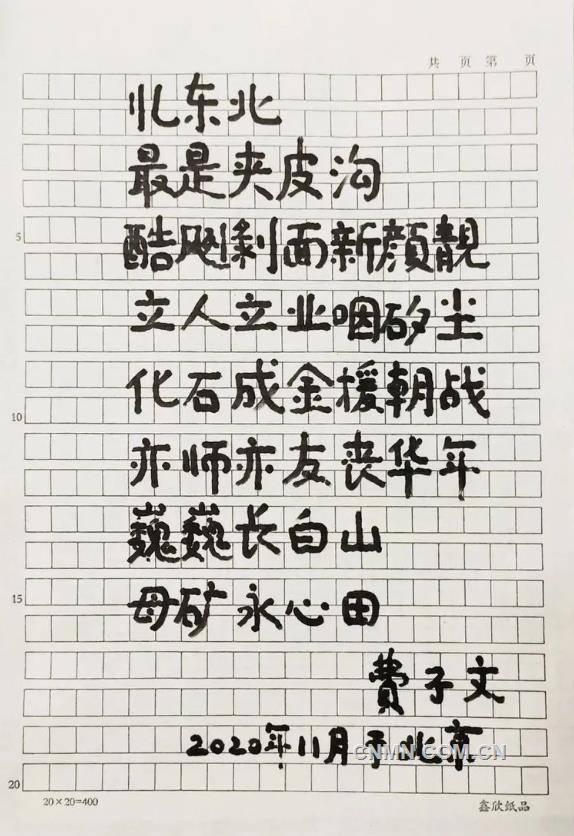 共 页 第 页
忆东北
最是夹皮沟
5
酷飕剩面新颜靓
立人立业咽矽尘
化石成金援朝战
10
亦师亦友丧华年
巍巍长白山
15
母矿永心田
費子文
2020年11月于北京
CNMN.COM.CN
20
20×20=400
鑫欣纸品